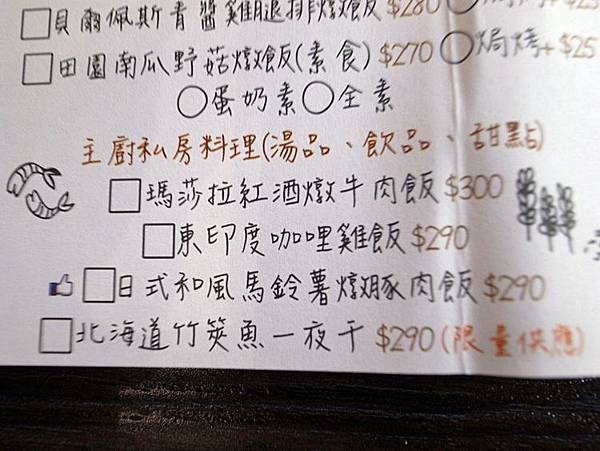 貝爾佩斯青醬雞腿排燉飯 $280
田園南瓜野菇燉飯(素食) $270 焗烤+$25
蛋奶素 全素
主廚私房料理(湯品、飲品、甜點)
瑪莎拉紅酒燉牛肉飯 $300
東印度咖哩雞飯 $290
日式和風馬鈴薯燉豚肉飯 $290
北海道竹筴魚一夜干 $290(限量供應)